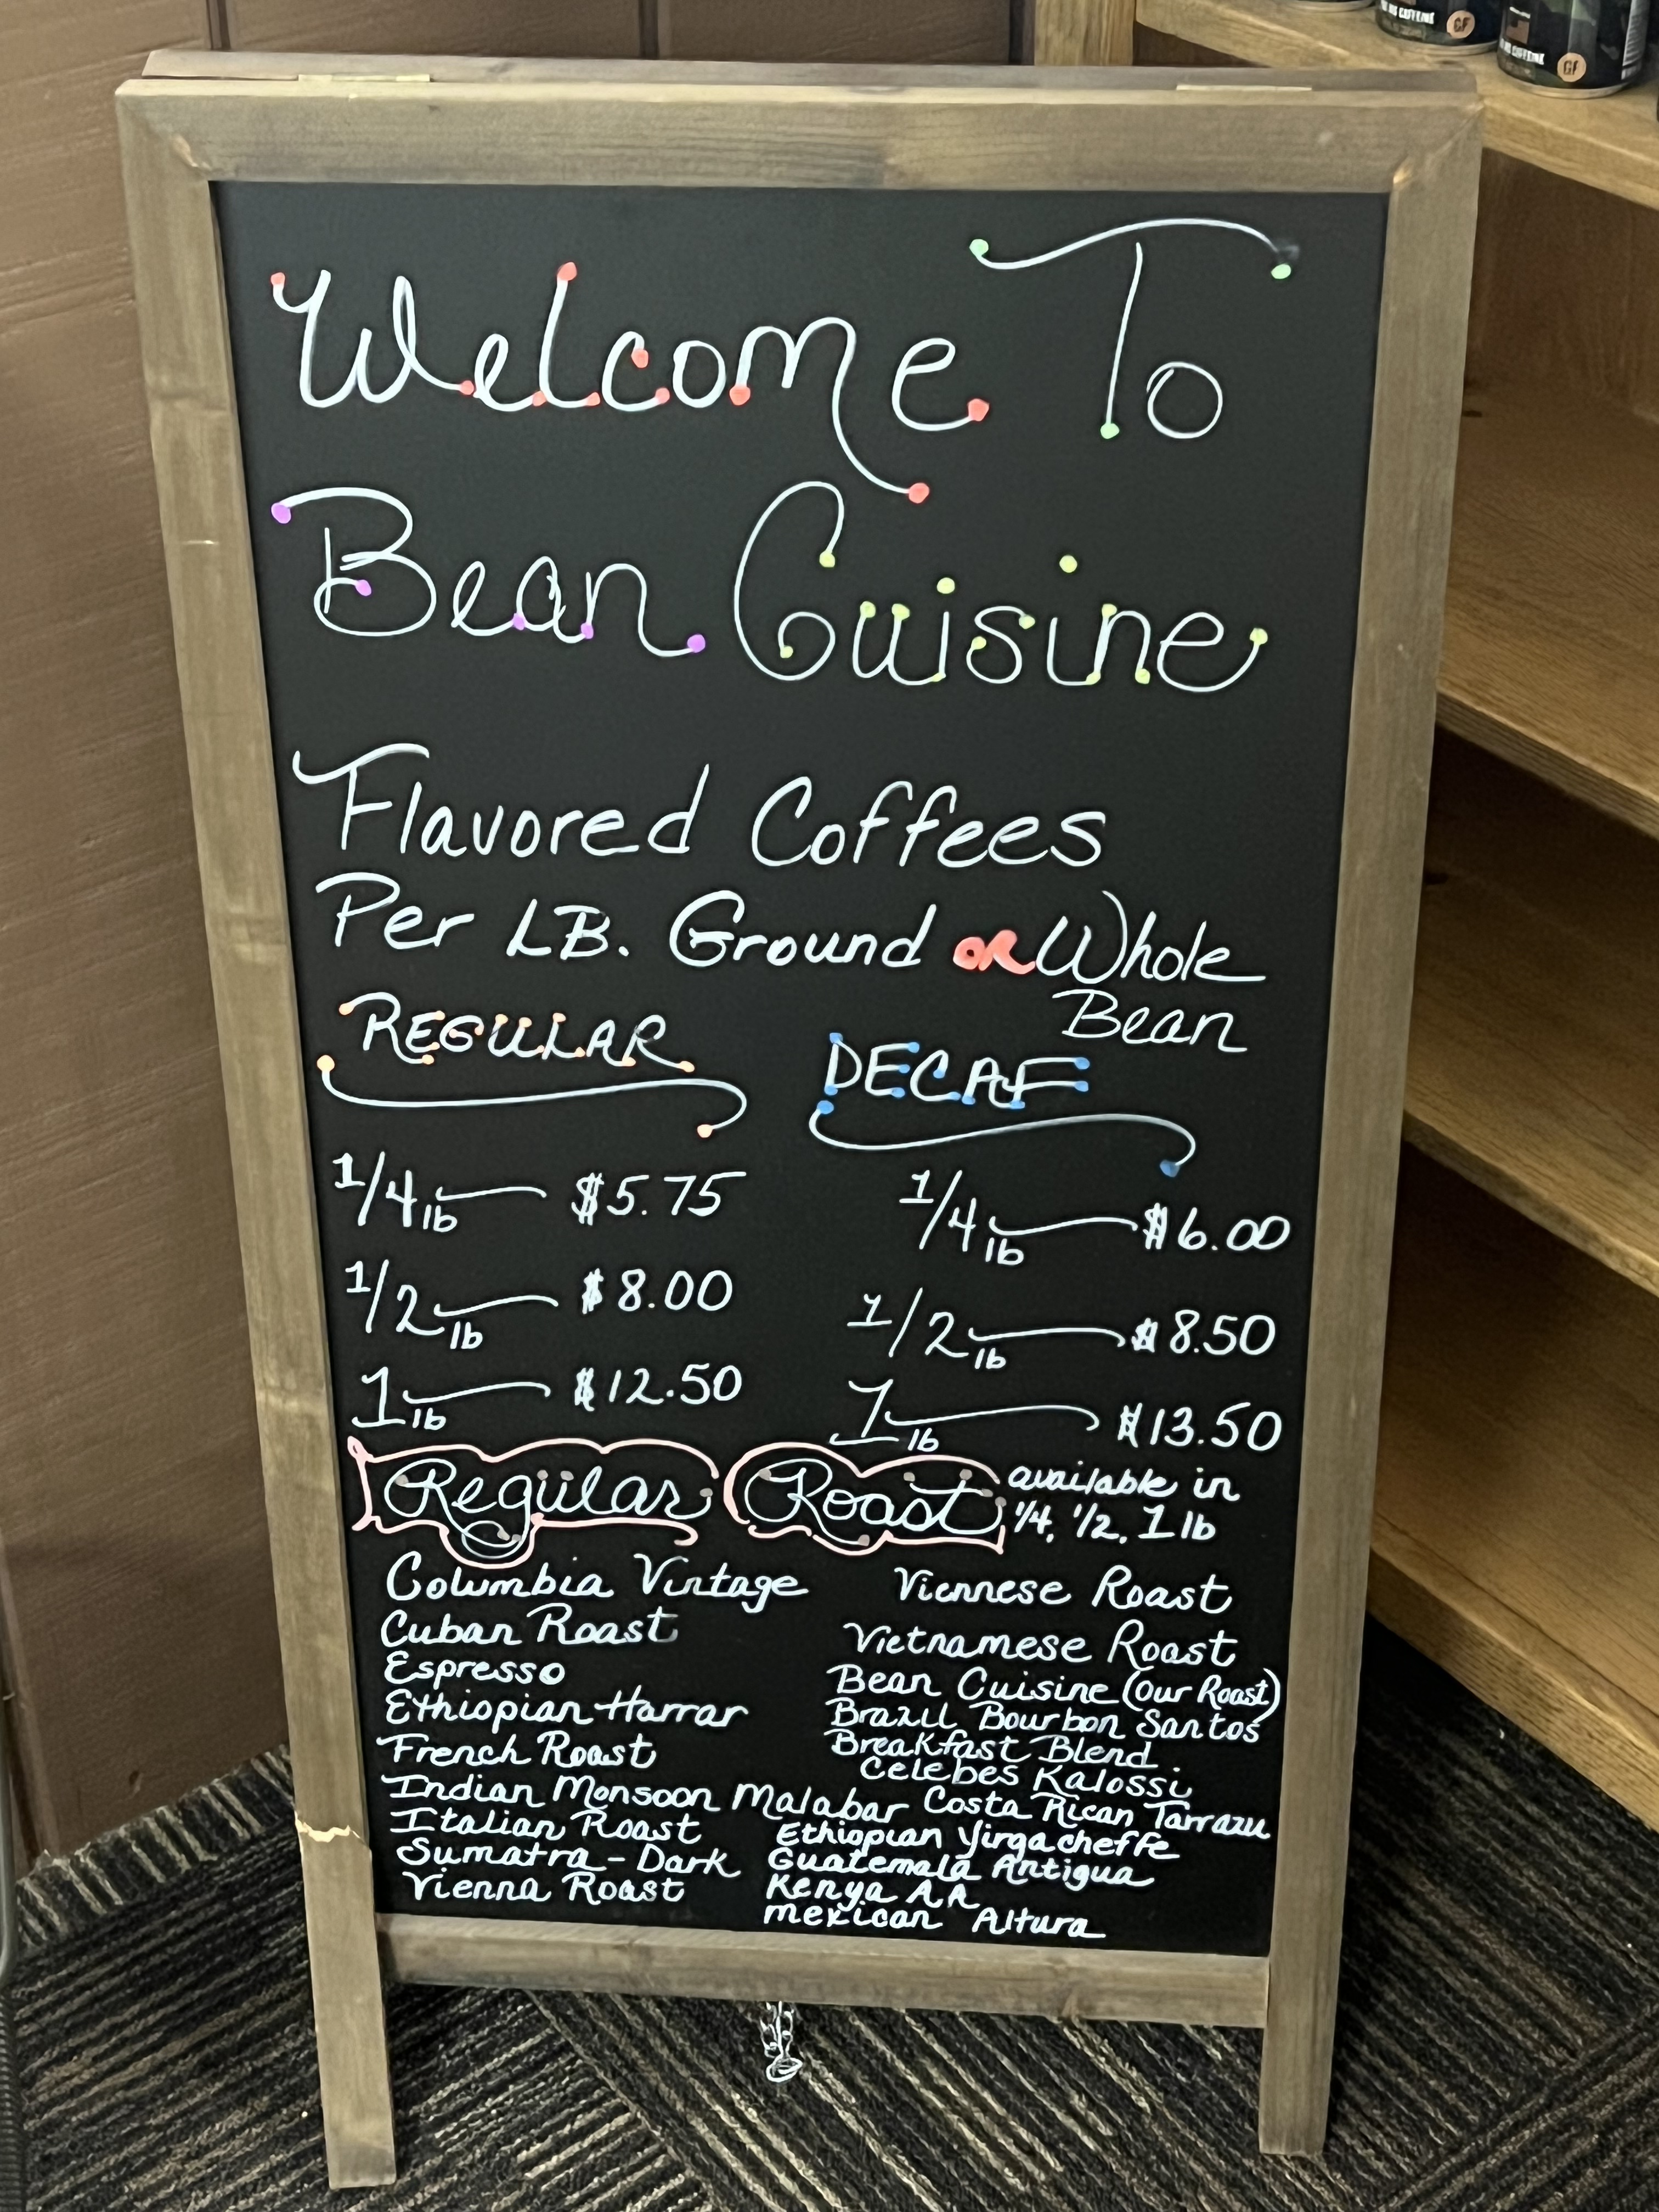 Welcome To
Bean Cuisine
Flavored Coffees
Per LB. Ground OR Whole
Bean
REGULAR
DECAF
1/4 lb $5.75
1/4 lb $6.00
1/2 lb $8.00
1/2 lb $8.50
1 lb $12.50
1 lb $13.50
Regular Roast available in
1/4, 1/2, 1 lb
Columbia Vintage
Viennese Roast
Cuban Roast
Vietnamese Roast
Espresso
Bean Cuisine (Our Roast)
Ethiopian Harrar
Brazil Bourbon Santos
French Roast
Breakfast Blend
Celebes Kalossi
Indian Monsoon Malabar
Costa Rican Tarrazu
Italian Roast
Ethiopian Yirgacheffe
Sumatra - Dark
Guatemala Antigua
Vienna Roast
Kenya AA
Mexican Altura
CAFFEINE
GF
CAFFEINE
GF